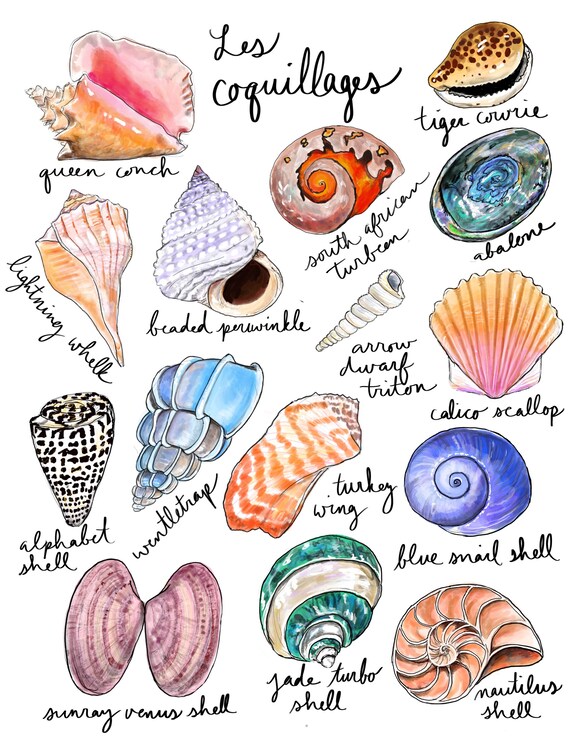 Les
coquillages
tiger cowrie
queen conch
south african
turbean
abalone
lightning whelk
beaded periwinkle
arrow
dwarf
triton
calico scallop
alphabet
shell
wentletrap
turkey
wing
blue snail shell
sunray venus shell
jade turbo
shell
nautilus
shell